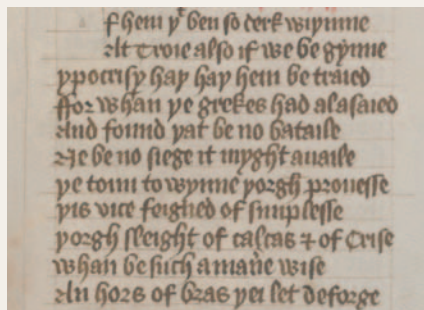 f hem yͭ ben so derk wiþinne
At Troie also if we be gynne
ypocrisy hay hay hem be traied
ffor whan ye grekes had al asaied
And found yat be no bataile
Ne be no siege it myght auaile
ye toun to wynne yorgh prouesse
yis vice feigned of simplesse
yorgh sleight of calcas ⁊ of Crise
whan be such a man̄e wise
An hors of bras yei let deforge